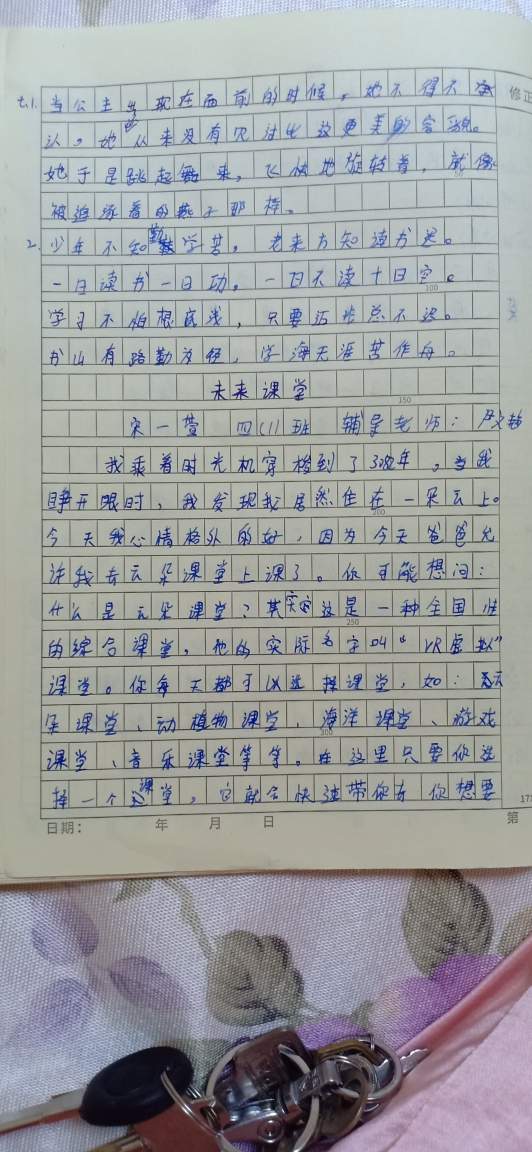 七.1.当公主出现在面前的时候，她不得不承 修正
认，她从来没有见过比这更美的容貌。
她于是跳起舞来，飞快地旋转着，就像
被追逐着的燕子那样。
2.少年不知勤学苦，老来方知读书迟。
一日读书一日功，一日不读十日空。
100
学习不怕根底浅，只要迈步总不迟。
书山有路勤为径，学海无涯苦作舟。
未来课堂
150
宋一萱 四(1)班 辅导老师：尹文
我乘着时光机穿梭到了 年，当我
睁开眼时，我发现我居然住在一朵云上。
200
今天我心情格外的好，因为今天爸爸允
许我去云朵课堂上课了。你可能想问：
什么是云朵课堂？其实这是一种全国性
250
的综合课堂，他的实际名字叫“VR虚拟”
课堂。你每天都可以选择课堂，如：云
朵课堂、动植物课堂、海洋课堂、游戏
300
课堂、音乐课堂等等。在这里只要你选
择一个课堂，它就会快速带你去你想要
日期： 年 月 日 第